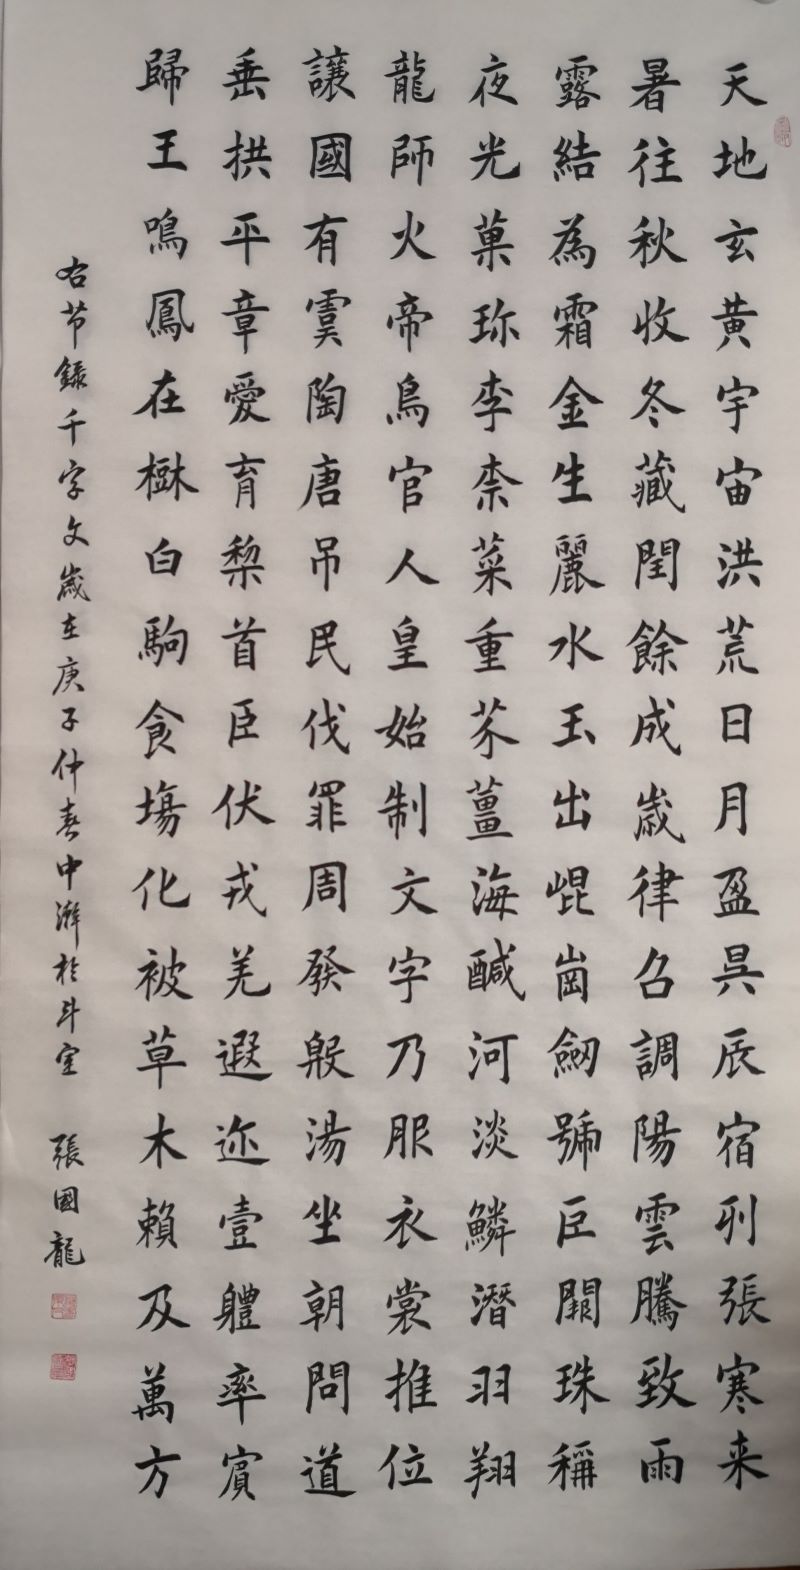 天地玄黄宇宙洪荒日月盈昃辰宿列張寒来
暑往秋收冬藏閏餘成歲律召調陽雲騰致雨
露結為霜金生麗水玉出崐崗劒號巨闕珠稱
夜光菓珎李柰菜重芥薑海鹹河淡鱗潛羽翔
龍師火帝鳥官人皇始制文字乃服衣裳推位
讓國有虞陶唐吊民伐罪周發殷湯坐朝問道
垂拱平章愛育黎首臣伏戎羌遐迩壹軆率賓
歸王鳴鳳在樹白駒食場化被草木賴及萬方
右节錄千字文歲在庚子仲春中澣於斗室 張國龍